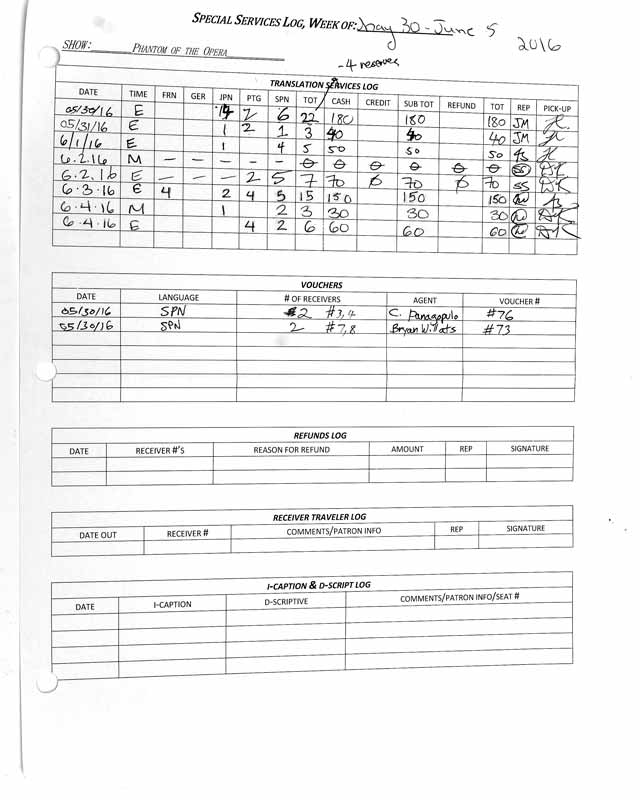 SPECIAL SERVICES LOG, WEEK OF: May 30 - June 5 2016
SHOW: PHANTOM OF THE OPERA
-4 receivers
TRANSLATION SERVICES LOG
DATE TIME FRN GER JPN PTG SPN TOT CASH CREDIT SUB TOT REFUND TOT REP PICK-UP
05/30/16 E 14 2 6 22 180 180 180 JM
05/31/16 E 1 2 1 3 40 40 40 JM
6/1/16 E 1 4 5 50 50 50
6.2.16 M - - - - - 0 0 0 0 0 0 SS DK
6.2.16 E - - - 2 5 7 70 0 70 0 70 SS DK
6.3.16 E 4 2 4 5 15 150 150 150
6.4.16 M 1 2 3 30 30 30 DK
6.4.16 E 4 2 6 60 60 60 DK
VOUCHERS
DATE LANGUAGE # OF RECEIVERS AGENT VOUCHER #
05/30/16 SPN 2 #3,4 C. Panagopulo #76
05/30/16 SPN 2 #7,8 Bryan Willats #73
REFUNDS LOG
DATE RECEIVER #'S REASON FOR REFUND AMOUNT REP SIGNATURE
RECEIVER TRAVELER LOG
DATE OUT RECEIVER # COMMENTS/PATRON INFO REP SIGNATURE
I-CAPTION & D-SCRIPT LOG
DATE I-CAPTION D-SCRIPTIVE COMMENTS/PATRON INFO/SEAT #